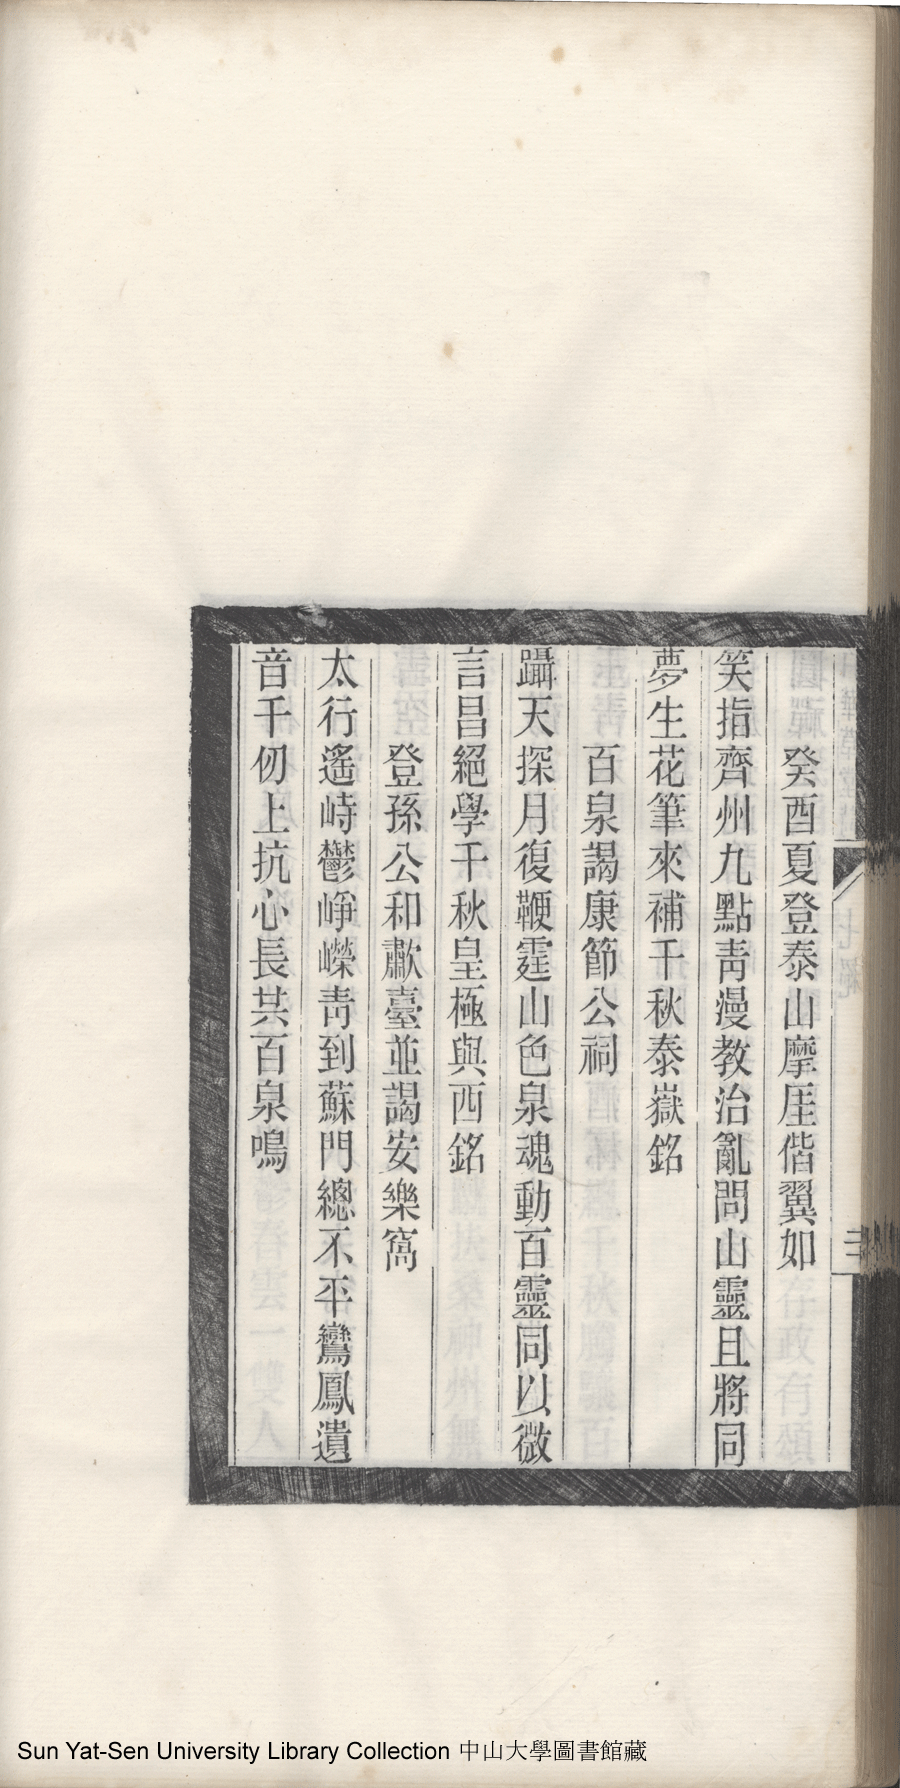 癸酉夏登泰山摩厓偕翼如
笑指齊州九點靑漫教治亂問山靈且將同
夢生花筆來補千秋泰嶽銘
百泉謁康節公祠
躡天探月復鞭霆山色泉魂動百靈同以微
言昌絕學千秋皇極與西銘
登孫公和歗臺並謁安樂窩
太行遙峙鬱崢嶸靑到蘇門總不平鸞鳳遺
音千仞上抗心長共百泉鳴
Sun Yat-Sen University Library Collection 中山大學圖書館藏